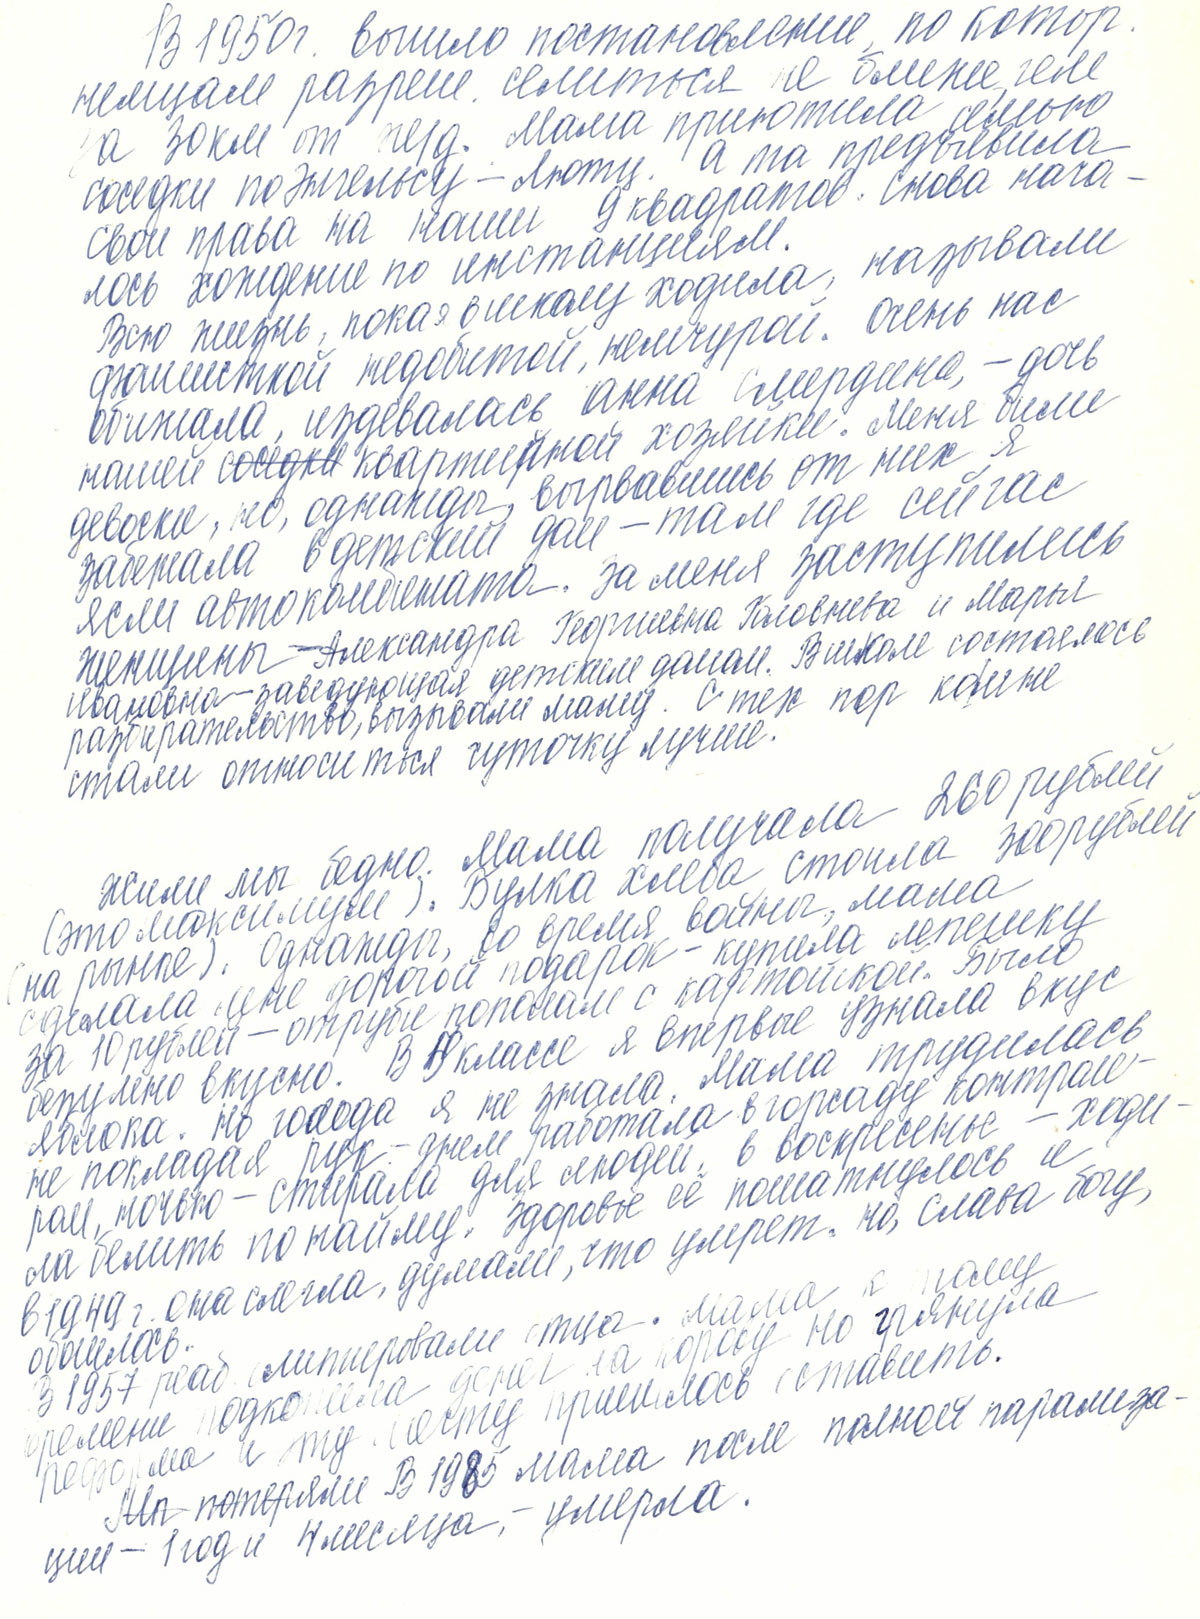 В 1950г. вышло постановление, по котор.
немцам разреш. селиться не ближе, чем
за 30км от жд. Мама приютила семью
соседки по Энгельсу – Лютц. А та предъявила
свои права на наши 9 квадратов. Снова нача-
лось хождение по инстанциям.
Всю жизнь, пока я в школу ходила, называли
фашисткой недобитой, немчурой. Очень нас
обижала, издевалась Анна Смердина, – дочь
нашей соседки квартирной хозяйки. Меня били
девочки, но, однажды, вырвавшись от них я
забежала в детский дом – там где сейчас
ясли автокомбината. За меня заступились
женщины – Александра Георгиевна Головнева и Марья
Ивановна – заведующая детским домом. В школе состоялось
разбирательство, вызывали маму. С тех пор ко мне
стали относиться чуточку лучше.
Жили мы бедно. Мама получала 260 рублей
(это максимум). Булка хлеба стоила 300 рублей
(на рынке). Однажды, во время войны, мама
сделала мне дорогой подарок – купила лепешку
за 10 рублей – отруби пополам с картошкой. Было
безумно вкусно. В классе я впервые узнала вкус
яблока. Но голода я не знала. Мама трудилась
не покладая рук – днем работала в горсаду контроле-
ром, ночью – стирала для людей, в воскресенье – ходи-
ла белить по найму. Здоровье её пошатнулось и
в 1949 г. она слегла, думали, что умрет. Но, слава богу,
обошлось.
В 1957 реабилитировали отца. Мама к тому
времени подкопила денег на корову но грянула
реформа и эту мечту пришлось оставить.
Мы потеряли В 1985 мама после полной парализа-
ции – 1 год и 4 месяца, – умерла.